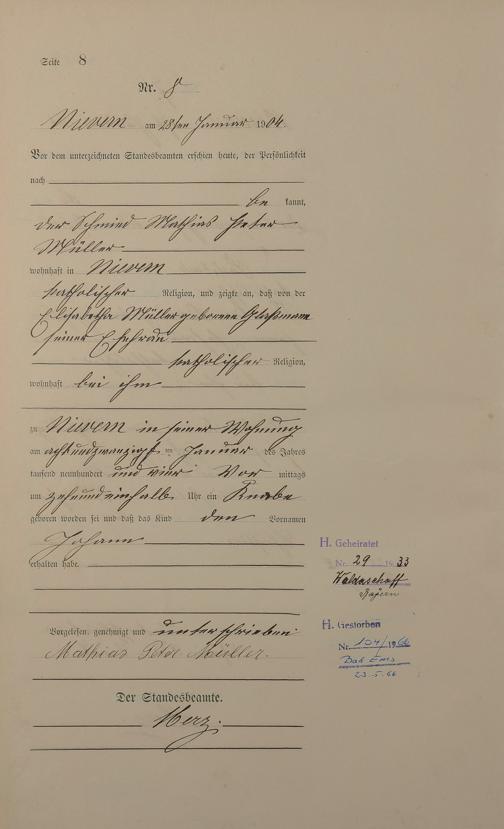 Seite 8
Nr. 8
Nievern am 28ten Januar 1904.
Vor dem unterzeichneten Standesbeamten erschien heute, der Persönlichkeit
nach
be kannt,
der Schmied Mathias Peter
Müller
wohnhaft in Nievern
katholischer Religion, und zeigte an, daß von der
Elisabetha Müller geborenen Glaßmann
seiner Ehefrau
katholischer Religion,
wohnhaft bei ihm
zu Nievern in seiner Wohnung
am achtundzwanzigsten Januar des Jahres
tausend neunhundert und vier Vor mittags
um zehnundeinhalb Uhr ein Knabe
geboren worden sei und daß das Kind den Vornamen
Johann
erhalten habe.
Vorgelesen, genehmigt und unterschrieben
Mathias Peter Müller.
Der Standesbeamte.
Merz.
H. Geheiratet
Nr. 29 1933
Waldaschaff
Bayern
H. Gestorben
Nr. 104/1966
Bad Ems
23.5.66